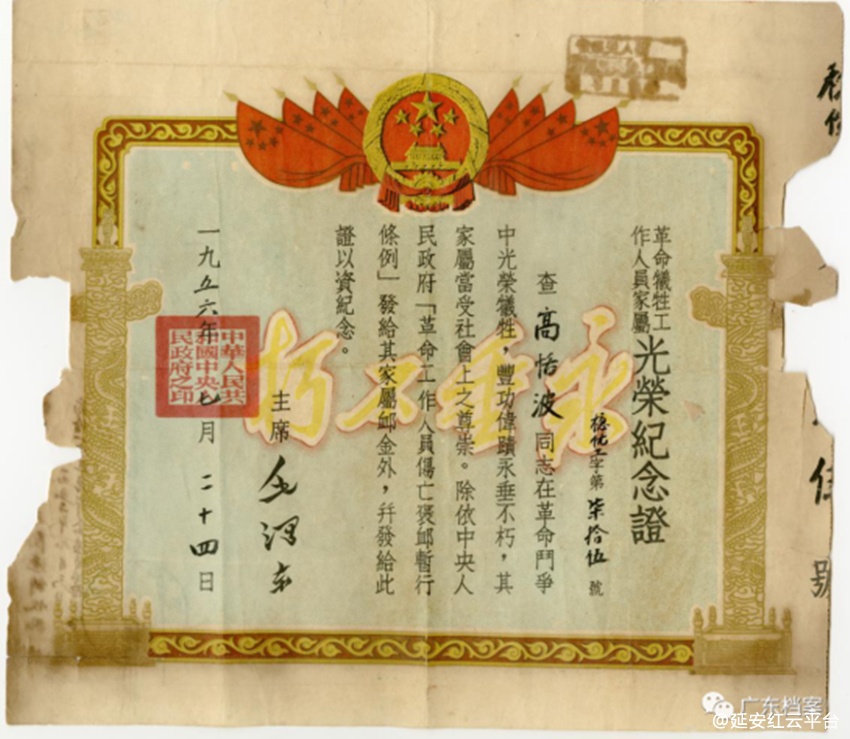 革命犧牲工
作人員家屬
光榮紀念證
穗优工字第柒拾伍號
查高恬波同志在革命鬥爭
中光榮犧牲，豐功偉蹟永垂不朽，其
家屬當受社會上之尊崇。除依中央人
民政府「革命工作人員傷亡褒卹暫行
條例」發給其家屬卹金外，幷發給此
證以資紀念。
主席
毛澤東
一九五六年七月二十四日
中華人民共
和國中央人
民政府之印
永垂不朽
號
广东档案
@延安红云平台